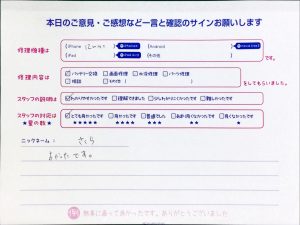 本日のご意見・ご感想など一言と確認のサインお願いします
修理機種は
iPhone 12ミニ
Android
iPad
その他
です。
修理内容は
☑バッテリー交換 □画面修理 □水没修理 □パーツ修理
□相談 □その他
をしてもらいました。
スタッフの説明は
☑わかりやすかったです □理解できました □少しわかりにくかったです □難しかったです
スタッフの対応は
★星の数★
☑とても良かったです □良かったです □普通でした □あまり良くなかったです □良くなかったです
★★★★★ ★★★★ ★★★ ★★ ★
ニックネーム： さくら
よかったです。
無事に直って良かったです。ありがとうございました